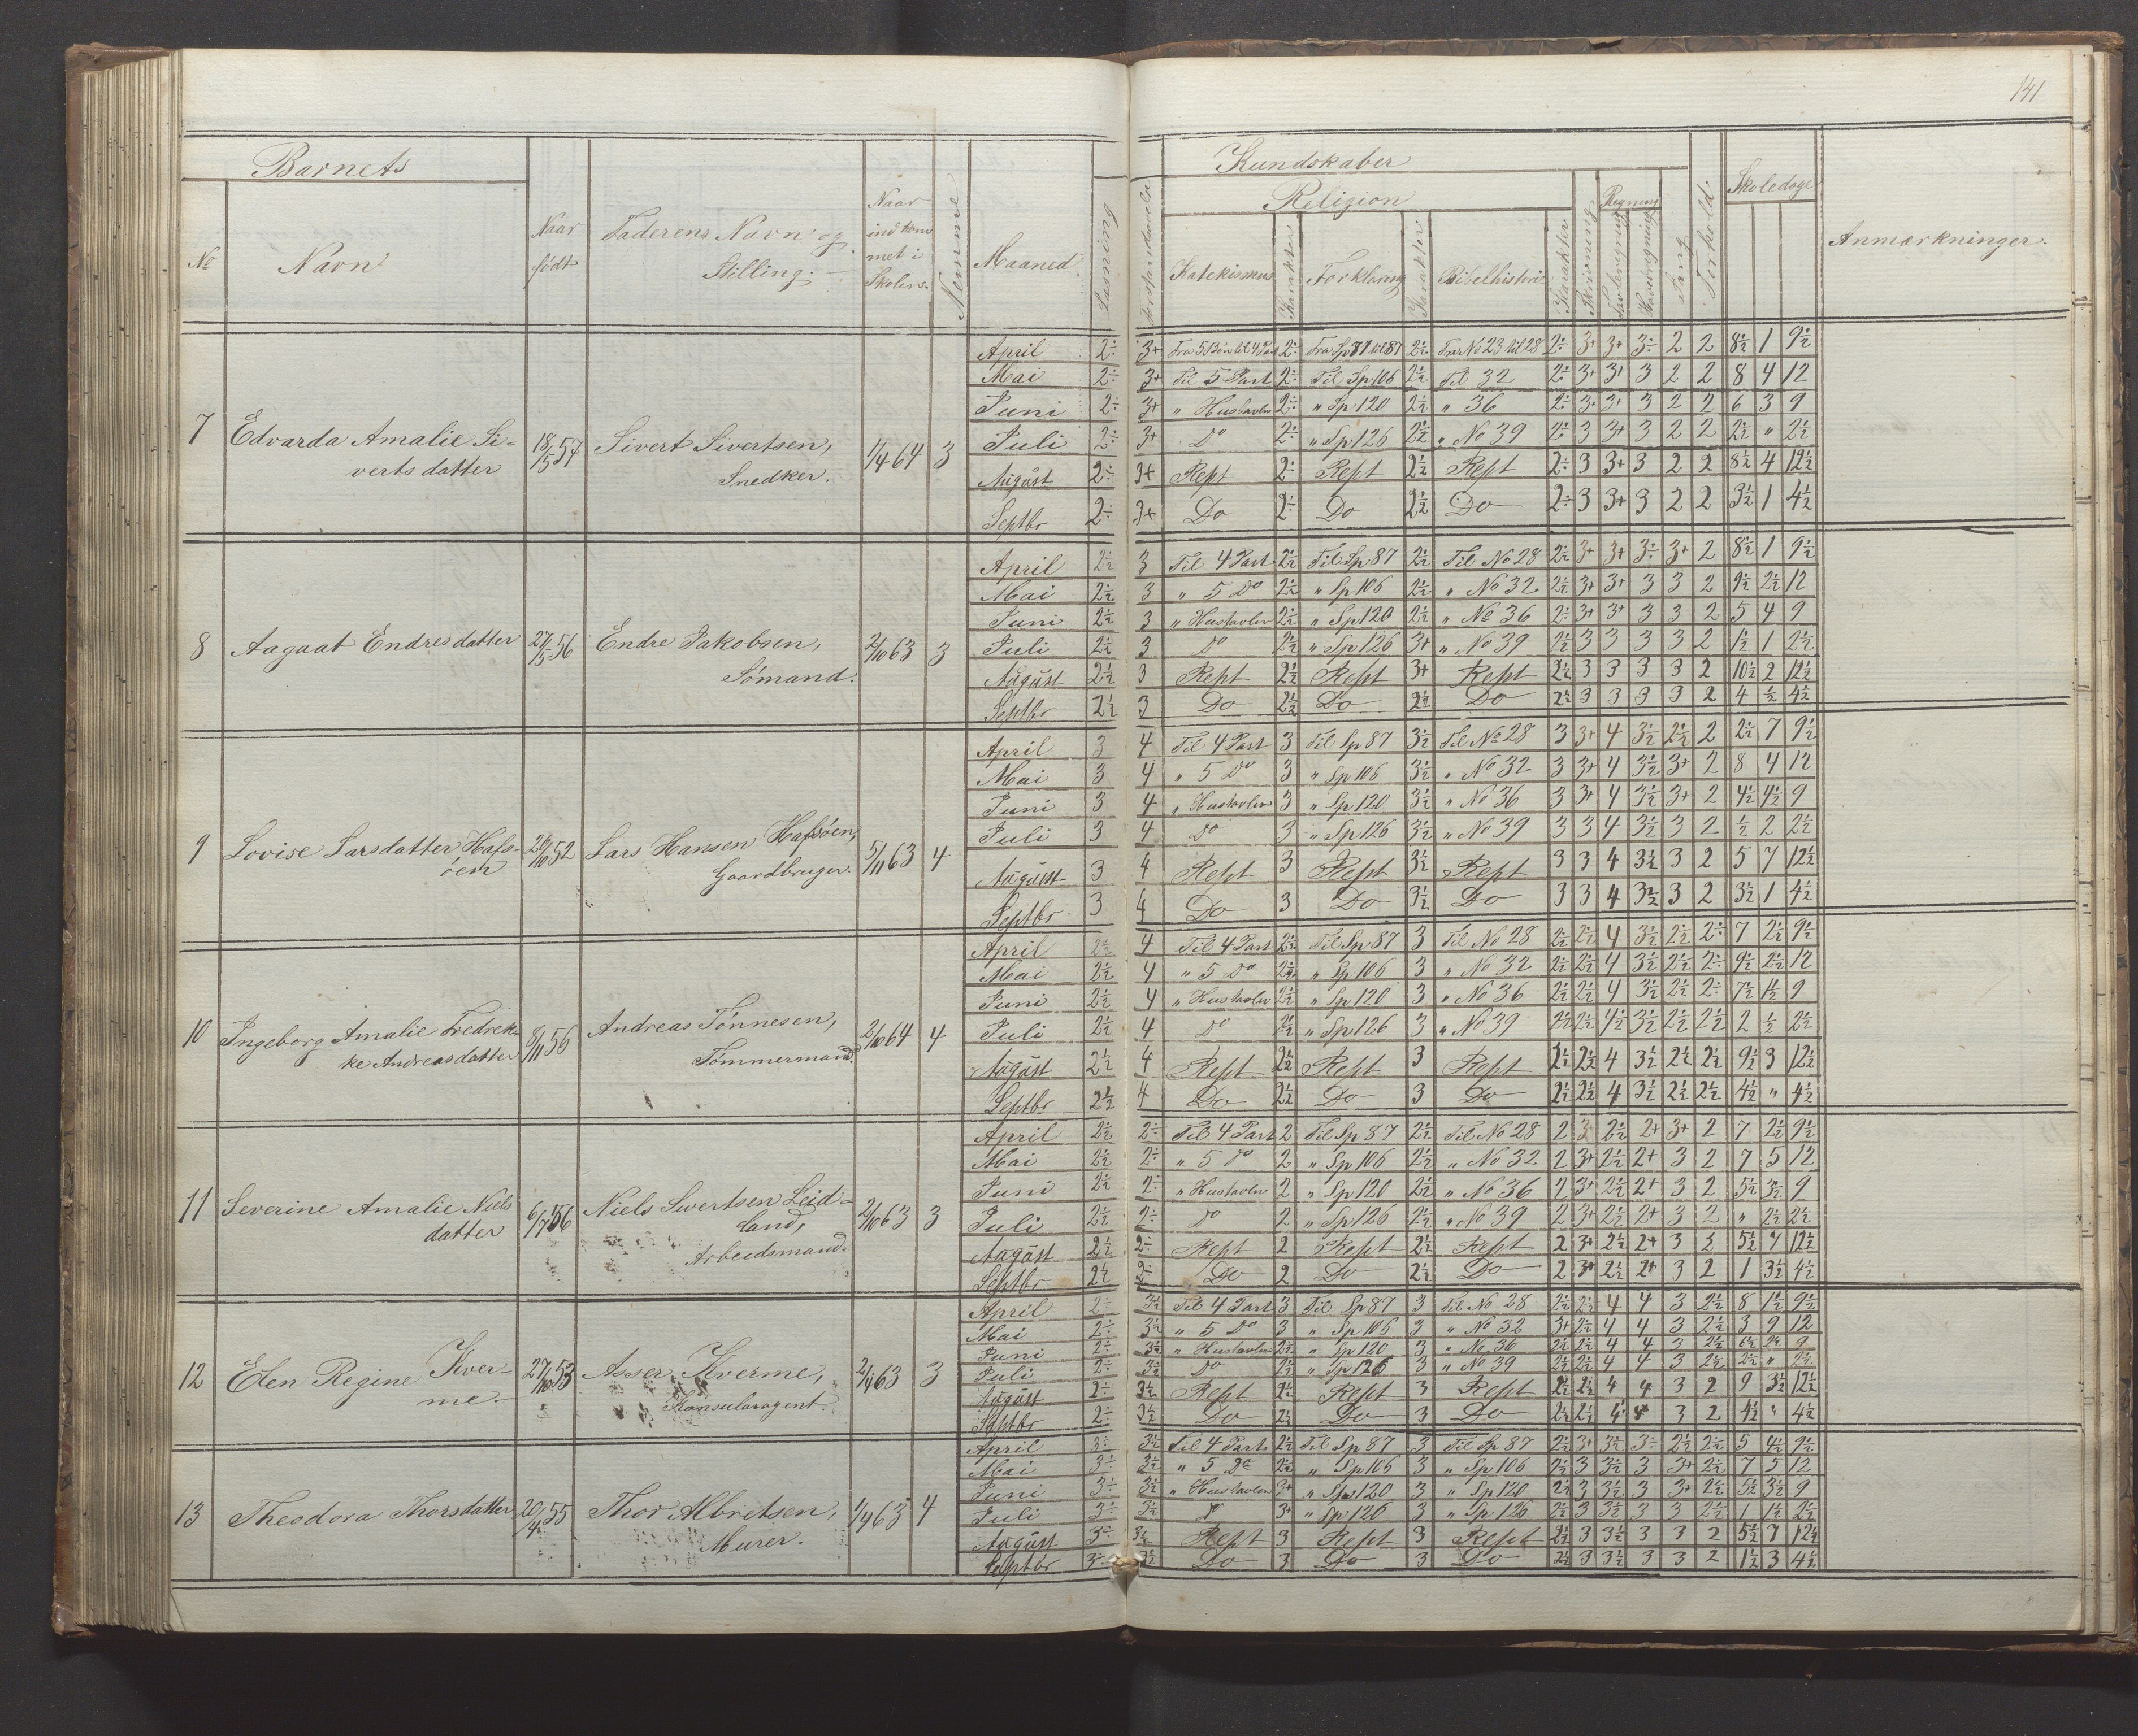 141
Barnets
Kundskaber
Religion
Regning
Skoledage
№ Navn
Naar født
Faderens Navn og Stilling.
Naar indkommet i Skolen.
Nemme
Maaned
Læsning
Forstandsøvelse
Katekismus
Karakter
Forklaring
Karakter
Bibelhistorie
Karakter
Skrivning
Tavleregning
Hovedregning
Sang
Forhold
Anmærkninger.
7 Edvarda Amalie Si=
verts datter
18/5 57
Sivert Sivertsen,
Snedker.
1/4 64 3
April 2÷ 3+ Fra 5 Bøn til 4 Part 2÷ Fra Sp 71 til 87 2½ Fra No 23 til 28 2÷ 3+ 3+ 3÷ 2 2 8½ 1 9½
Mai 2÷ 3+ Til 5 Part 2÷ Til Sp 106 2½ Til 32 2÷ 3+ 3+ 3 2 2 8 4 12
Juni 2÷ 3+ " Hustavlen 2÷ " Sp 120 2½ " 36 2÷ 3+ 3+ 3 2 2 6 3 9
Juli 2÷ 3+ Do 2÷ " Sp 126 2½ " No 39 2÷ 3 3+ 3 2 2 2½ " 2½
August 2÷ 3+ Rept 2÷ Rept 2½ Rept 2÷ 3 3+ 3 2 2 8½ 4 12½
Septbr 2÷ 3+ Do 2÷ Do 2½ Do 2÷ 3 3+ 3 2 2 3½ 1 4½
8 Aagaat Endresdatter
27/5 56
Endre Jakobsen,
Sømand.
2/10 63 3
April 2½ 3 Til 4 Part 2½ Til Sp 87 2½ Til No 28 2½ 3+ 3+ 3÷ 3+ 2 8½ 1 9½
Mai 2½ 3 " 5 Do 2½ " Sp 106 2½ " No 32 2½ 3+ 3+ 3 3 2 9½ 2½ 12
Juni 2½ 3 " Hustavlen 2½ " Sp 120 2½ " No 36 2÷ 3+ 3+ 3 3 2 5 4 9
Juli 2½ 3 Do 2½ " Sp 126 3+ " No 39 2½ 3 3 3 3 2 1½ 1 2½
August 2½ 3 Rept 2½ Rept 3+ Rept 2½ 3 3 3 3 2 10½ 2 12½
Septbr 2½ 3 Do 2½ Do 2½ Do 2½ 3 3 3 3 2 4 ½ 4½
9 Lovise Larsdatter Hafs-
øen
26/10 52
Lars Hansen Hafsøen,
Gaardbruger.
5/11 63 4
April 3 4 Til 4 Part 3 Til Sp 87 3½ Til No 28 3 3+ 4 3½ 2½ 2 2½ 7 9½
Mai 3 4 " 5 Do 3 " Sp 106 3½ " No 32 3 3+ 4 3½ 3+ 2 8 4 12
Juni 3 4 " Hustavlen 3 " Sp 120 3½ " No 36 3 3+ 4 3½ 3+ 2 4½ 4½ 9
Juli 3 4 Do 3 " Sp 126 3½ " No 39 3 3 4 3½ 3 2 ½ 2 2½
August 3 4 Rept 3 Rept 3½ Rept 3 3 4 3½ 3 2 5 7 12½
Septbr 3 4 Do 3 Do 3½ Do 3 3 4 3½ 3 2 3½ 1 4½
10 Ingeborg Amalie Fredrek-
ke Andreasdatter
8/11 56
Andreas Tønnesen,
Tømmermand.
2/10 64 4
April 2½ 4 Til 4 Part 2½ Til Sp 87 3 Til No 28 2½ 2½ 4 3½ 2½ 2÷ 7 2½ 9½
Mai 2½ 4 " 5 Do 2½ " Sp 106 3 " No 32 2½ 2½ 4 3½ 2½ 2÷ 9½ 2½ 12
Juni 2½ 4 " Hustavlen 2½ " Sp 120 3 " No 36 2½ 2½ 4 3½ 2½ 2÷ 7½ 1½ 9
Juli 2½ 4 Do 2½ " Sp 126 3 " No 39 2½ 2½ 4½ 3½ 2½ 2½ 2 ½ 2½
August 2½ 4 Rept 2½ Rept 3 Rept 2½ 2½ 4 3½ 2½ 2½ 9½ 3 12½
Septbr 2½ 4 Do 2½ Do 3 Do 2½ 2½ 4 3½ 2½ 2½ 4½ " 4½
11 Severine Amalie Niels
datter
6/7 56
Niels Sivertsen Leid=
land,
Arbeidsmand.
2/10 63 3
April 2½ 2÷ Til 4 Part 2 Til Sp 87 2½ Til No 28 2 3 2½ 2+ 3+ 2 7 2½ 9½
Mai 2½ 2÷ " 5 Do 2 " Sp 106 2½ " No 32 2 3+ 2½ 2+ 3 2 7 5 12
Juni 2½ 2÷ " Hustavlen 2 " Sp 120 2½ " No 36 2 3+ 2½ 2+ 3 2 5½ 3½ 9
Juli 2½ 2÷ Do 2 " Sp 126 2½ " No 39 2 3+ 2½ 2+ 3 2 " 2½ 2½
August 2½ 2÷ Rept 2 Rept 2½ Rept 2 3+ 2½ 2+ 3 2 5½ 7 12½
Septbr 2½ 2÷ Do 2 Do 2½ Do 2 3+ 2½ 2+ 3 2 1 3½ 4½
12 Elen Regine Kver-
me.
27/10 53
Asser Kverme,
Konsularagent.
2/4 63 3
April 2÷ 3½ Til 4 Part 3 Til Sp 87 3 Til No 28 2½ 2½ 4 4 3 2½ 8 1½ 9½
Mai 2÷ 3½ " 5 Do 3 " Sp 106 3 " No 32 3+ 2½ 4 4 3 2½ 3 9 12
Juni 2÷ 3½ " Hustavlen 2½ " Sp 120 3 " No 36 2½ 2½ 4 4 3 2½ 6½ 2½ 9
Juli 2÷ 3½ Do 2½ " Sp 126 3 " No 39 2½ 2½ 4 4 3 2½ 2½ " 2½
August 2÷ 3½ Rept 2½ Rept 3 Rept 2½ 2½ 4 4 3 2 9 3½ 12½
Septbr 2÷ 3½ Do 2½ Do 3 Do 2½ 2½ 4 4 3 2 4½ " 4½
13 Theodora Thorsdatter
20/4 55
Thor Albretsen,
Murer.
1/4 63 4
April 3÷ 3½ Til 4 Part 2½ Til Sp 87 3 Til Sp 87 2½ 3+ 3½ 3÷ 2½ 2½ 5 4½ 9½
Mai 3÷ 3½ " 5 Do 2½ " Sp 106 3 " Sp 106 2½ 3 3½ 3 3+ 2½ 7 5 12
Juni 3÷ 3½ " Hustavlen 3+ " Sp 120 3 " Sp 120 2½ 3 3½ 3 3+ 2½ 5½ 3½ 9
Juli 3÷ 3½ Do 3+ " Sp 126 3 " Sp 126 2½ 3 3½ 3 3 2½ 1 1½ 2½
August 3÷ 3½ Rept 3 Rept 3 Rept 2½ 3 3½ 3 3 2 5½ 7 12½
Septbr 3÷ 3½ Do 3 Do 3 Do 2½ 3 3½ 3 3 2 1½ 3 4½